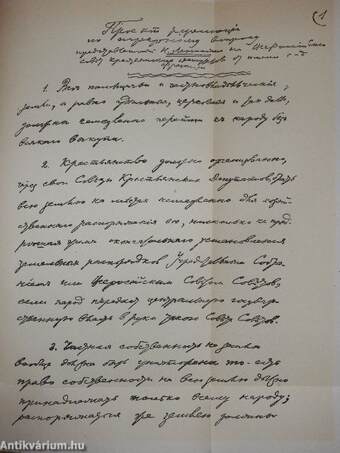 (1
Проект резолюции
по аграрному вопросу
предложенной Н. Лениным на Всероссийск.
совет крестьянских депутатов от имени
фракции
1. Все помещичьи и частновладельческие
земли, а равно удельные, церковные и
должны немедленно перейти к народу без
всякого выкупа.
2. Крестьянство должно организованно,
через свои Советы Крестьянских Депутатов, брать
всю землю на местах немедленно для
распоряжения ею, нисколько не
окончательного установления
земельных распорядков Учредительным Собра-
нием или Всероссийским Советом Советов,
если народ передаст центральную государ-
ственную власть в руки такого Совета Советов.
3. Частная собственность на землю
вообще должна быть уничтожена, то-есть
право собственности на всю землю должно
принадлежать только всему народу;
распоряжаться же землею должны
Antikvárium.hu